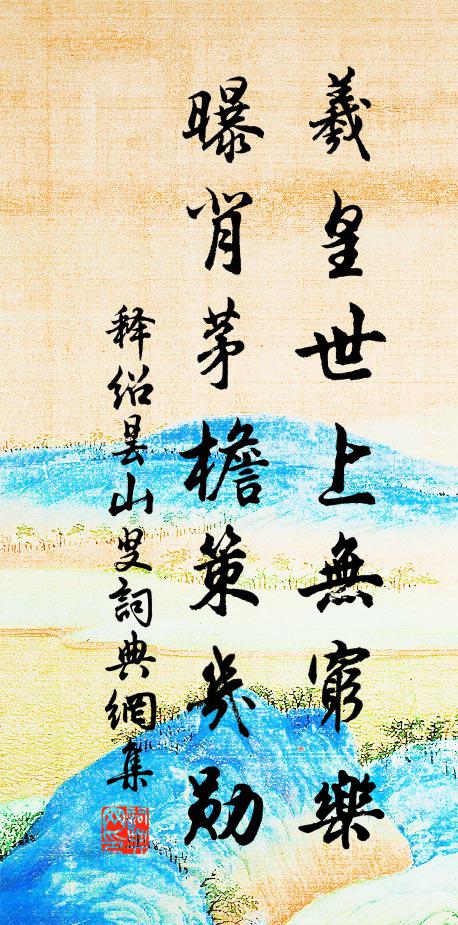 羲皇世上無窮樂
曝背茅檐策幾勛
释绍曇山叟詞典網集